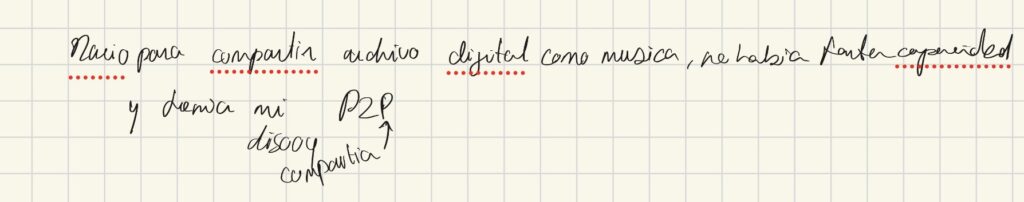 Nacio para compartir archivo digital como musica, no habia tanta capacidad
y tenia mi P2P
disco y
compartia